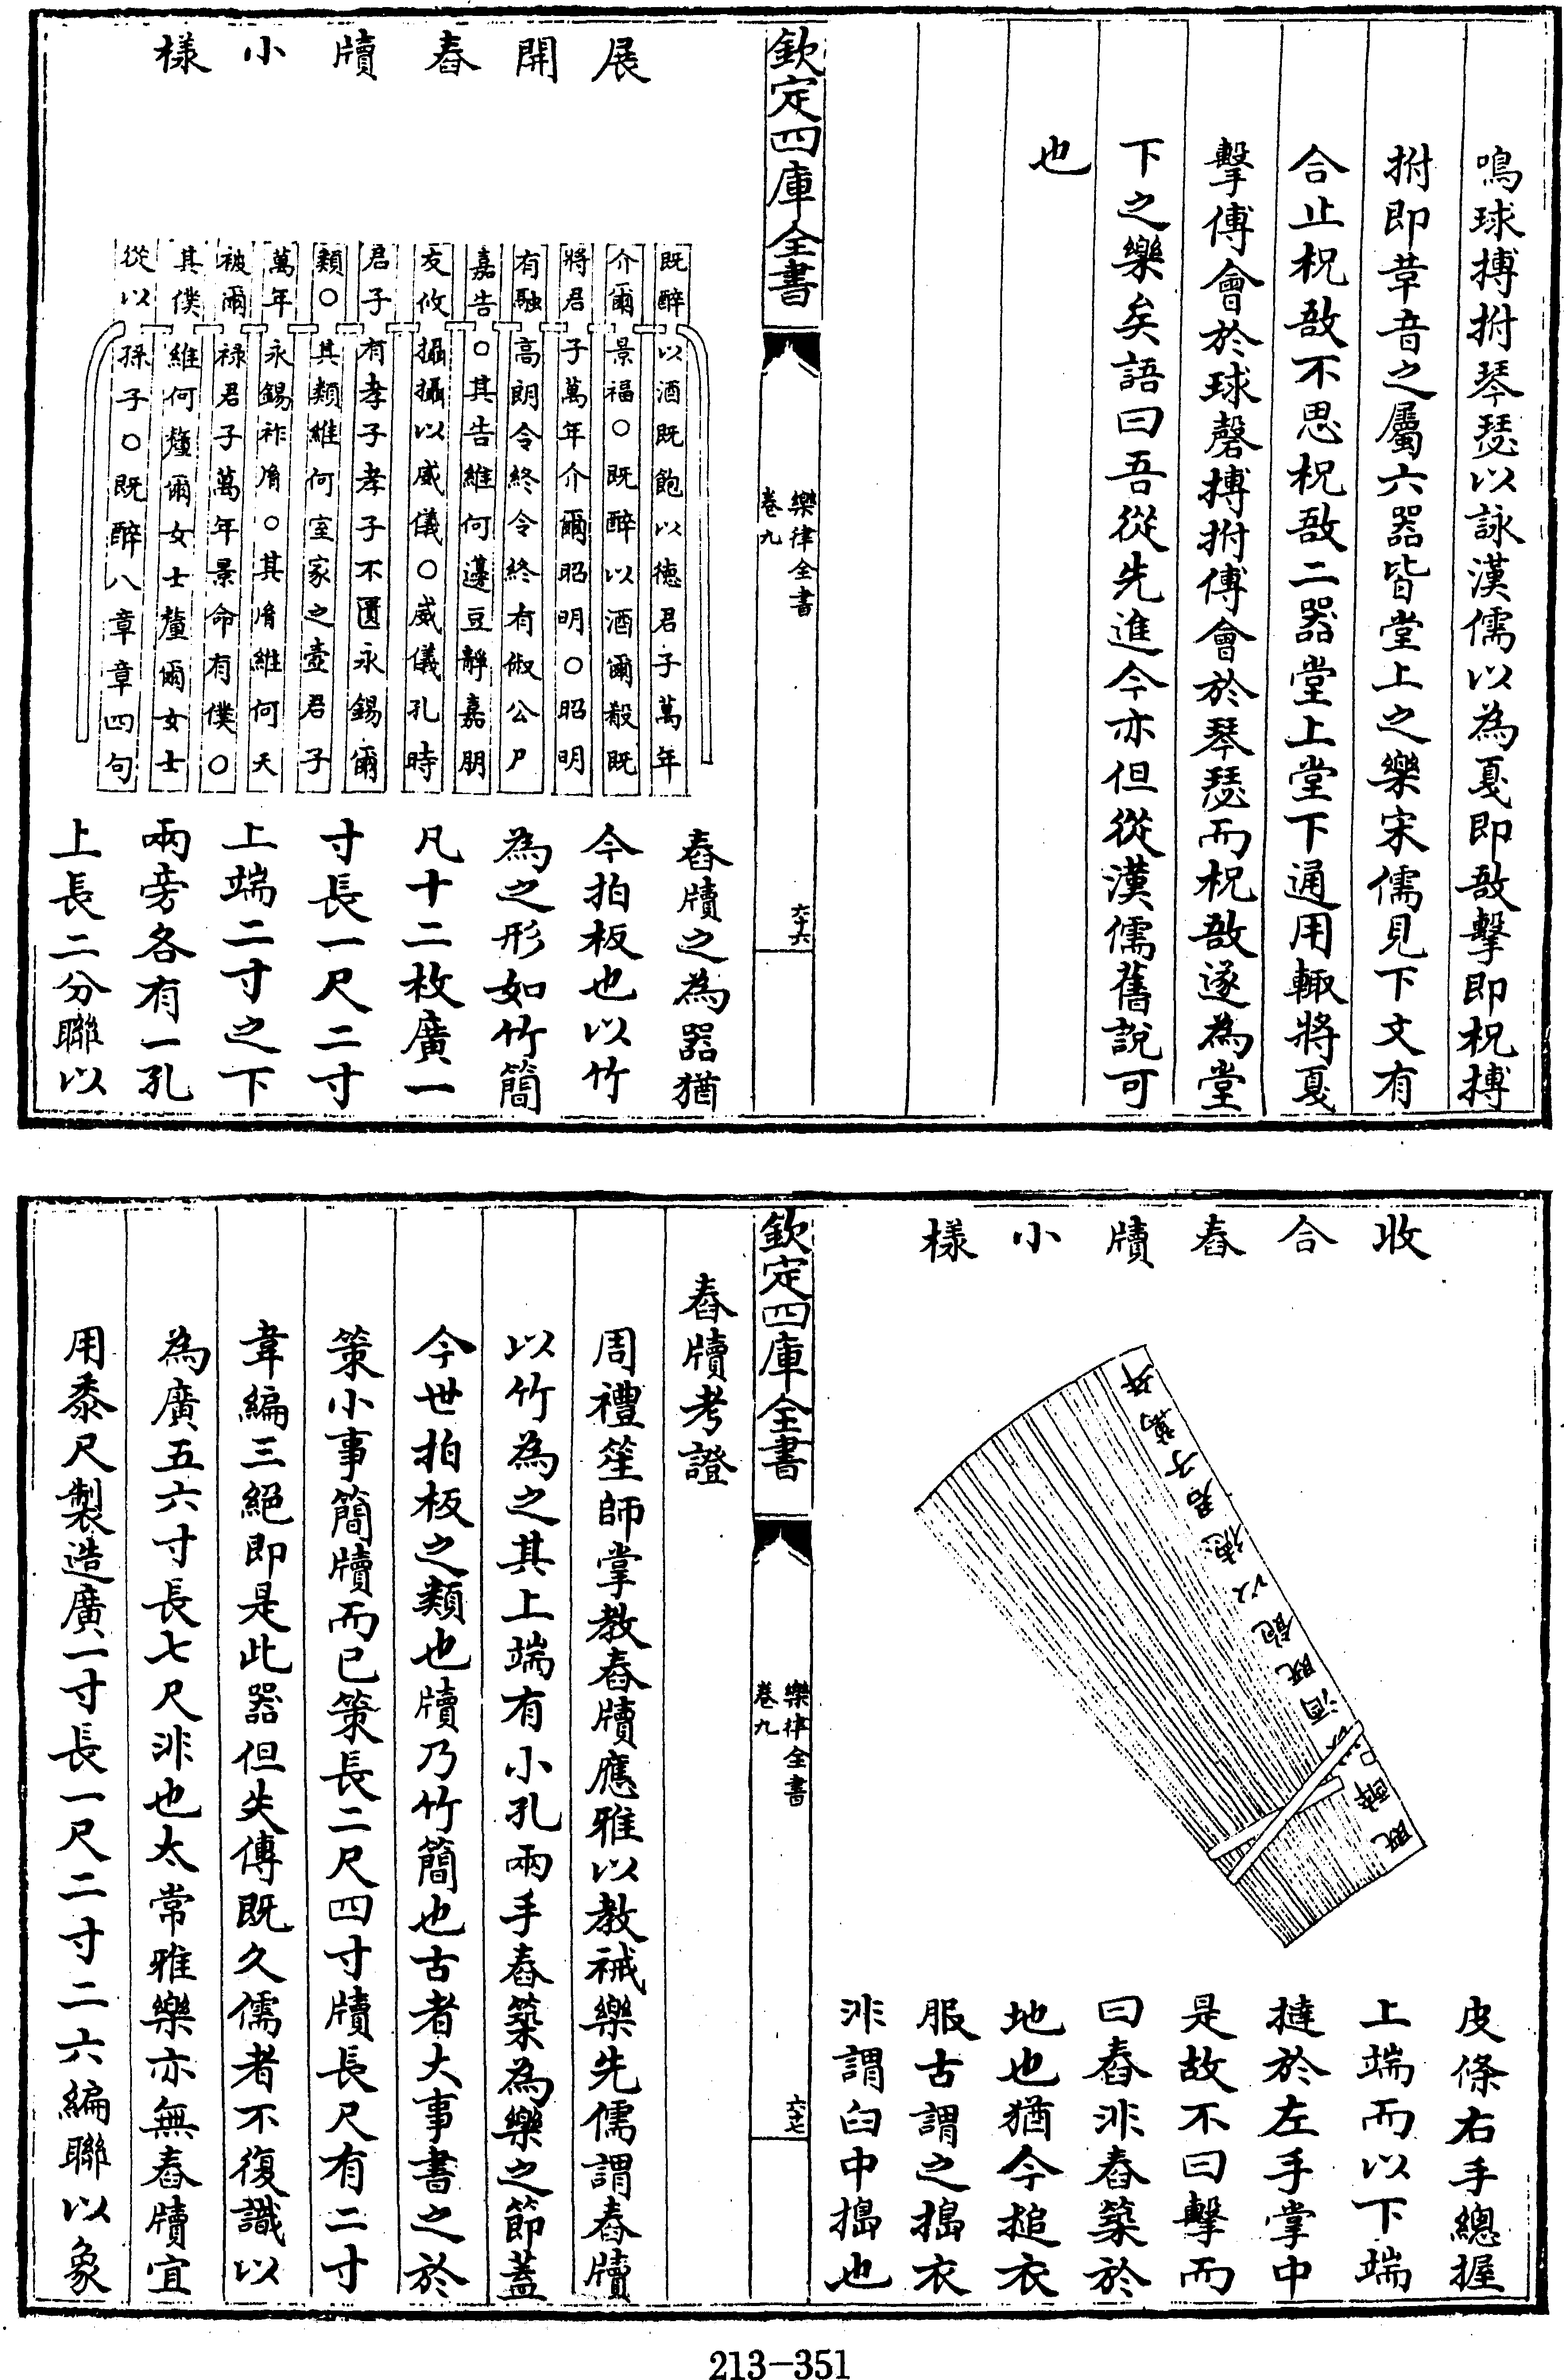 鳴球搏拊琴瑟以詠漢儒以為戛即敔擊即柷搏
拊即韋音之屬六器皆堂上之樂宋儒見下文有
合止柷敔不思柷敔二器堂上堂下通用輙將戛
擊傅會於球磬搏拊傅會於琴瑟而柷敔遂為堂
下之樂矣語曰吾從先進今亦但從漢儒舊說可
也
欽定四庫全書
樂律全書
卷九
六十六
展開舂牘小様
既醉以酒既飽以徳君子萬年
介爾景福○既醉以酒爾殽既
將君子萬年介爾昭明○昭明
有融高朗令終令終有俶公尸
嘉告○其告維何籩豆靜嘉朋
友攸攝攝以威儀○威儀孔時
君子有孝子孝子不匱永錫爾
類○其類維何室家之壼君子
萬年永錫祚胤○其胤維何天
被爾禄君子萬年景命有僕○
其僕維何釐爾女士釐爾女士
從以孫子○既醉八章章四句
舂牘之為器猶
今拍板也以竹
為之形如竹簡
凡十二枚廣一
寸長一尺二寸
上端二寸之下
兩旁各有一孔
上長二分聯以
收合舂牘小様
既醉
酒既飽以徳君子萬年
皮條右手總握
上端而以下端
撻於左手掌中
是故不曰擊而
曰舂非舂築於
地也猶今搥衣
服古謂之搗衣
非謂臼中搗也
欽定四庫全書
樂律全書
卷九
六十七
舂牘考證
周禮笙師掌教舂牘應雅以教祴樂先儒謂舂牘
以竹為之其上端有小孔兩手舂築為樂之節蓋
今世拍板之類也牘乃竹簡也古者大事書之於
策小事簡牘而已策長二尺四寸牘長尺有二寸
韋編三絕即是此器但失傳既久儒者不復識以
為廣五六寸長七尺非也太常雅樂亦無舂牘宜
用黍尺製造廣一寸長一尺二寸二六編聯以象
213-351